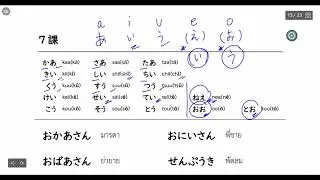 15/23
a i u e o
あ い う (え) (お)
い う
7課
かあ kaa(kā) さあ saa(sā) たあ taa(tā)
きい kii(kī) しい shii(shī) ちい chii(chī)
くう kuu(kū) すう suu(sū) つう tsuu(tsū)
けい kei(kē) せい sei(sē) てい tei(tē) ねえ nee(nē)
こう kou(kō) そう sou(sō) とう tou(tō) おお oo(ō) とお too(tō)
おかあさん มารดา おにいさん พี่ชาย
おばあさん ย่ายาย せんぷうき พัดลม